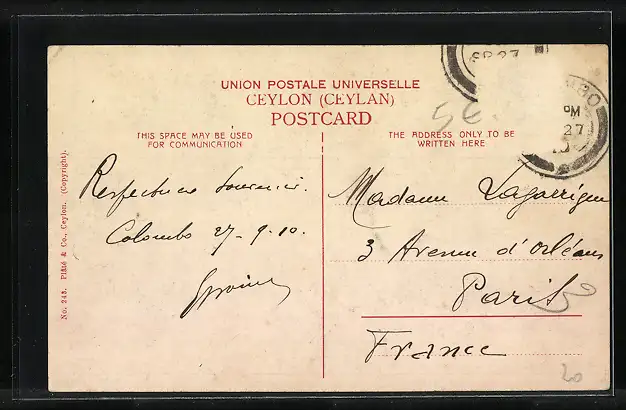 UNION POSTALE UNIVERSELLE
CEYLON (CEYLAN)
POSTCARD
THIS SPACE MAY BE USED
FOR COMMUNICATION
THE ADDRESS ONLY TO BE
WRITTEN HERE
Respectueux Souvenir.
Colombo 27-9-10.
Madame Lagarrigue
3 Avenue d'Orléans
Paris
France
No. 243. Plâté & Co., Ceylon. (Copyright).
SP 27
PM
27
20